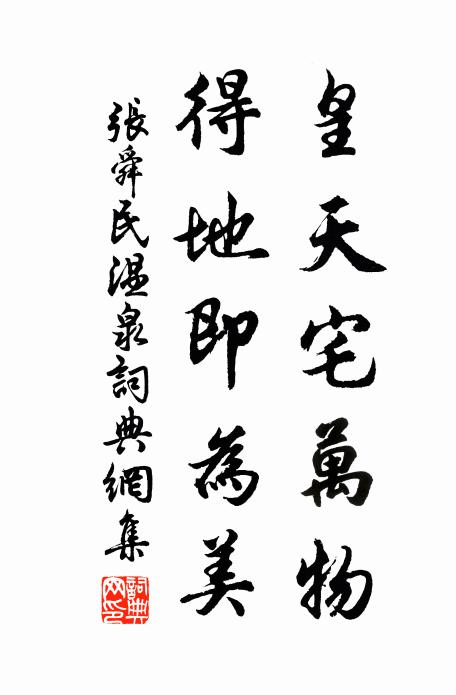 皇天宅萬物
得地即為美
張舜民溫泉詞典網集
詞典網印